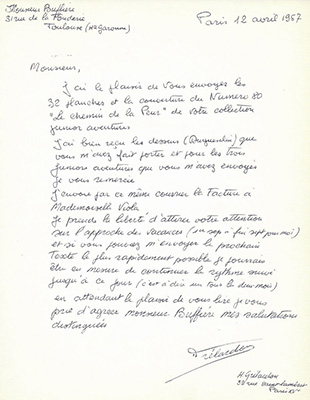 Monsieur Buffière
31 rue de la Fonderie
Toulouse (Hte Garonne)
Paris 12 avril 1957
Monsieur,
J'ai le plaisir de vous envoyer les
32 planches et la couverture du Numero 80
"Le chemin de la Peur" de votre collection
Junior aventures
J'ai bien reçu les dessins (Duquentin) que
vous m'avez fait porter et pour les trois
Juniors aventures que vous m'avez envoyés
Je vous remercie
J'envoie par ce même courrier la facture à
Mademoiselle Viola
Je prends la liberté d'attirer votre attention
sur l'approche des vacances
et si vous pouvez m'envoyer le prochain
Texte le plus rapidement possible je pourrais
être en mesure de continuer le rythme suivi
jusqu'à ce jour (c'est à dire un tous les deux mois)
en attendant le plaisir de vous lire je vous
prie d'agréer monsieur Buffière mes salutations
distinguées
H. Grélardon
Paris